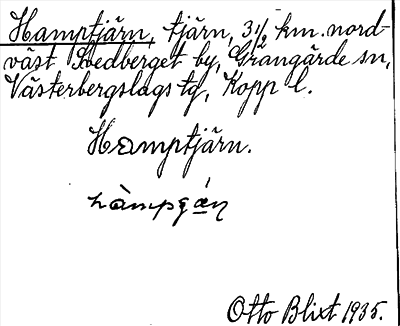 Hamptjärn, tjärn, 3½ km. nord-
väst Hedberget by, Grangärde sn,
Västerbergslags tg, Kopp l.
Hamptjärn.
Otto Blixt 1935.